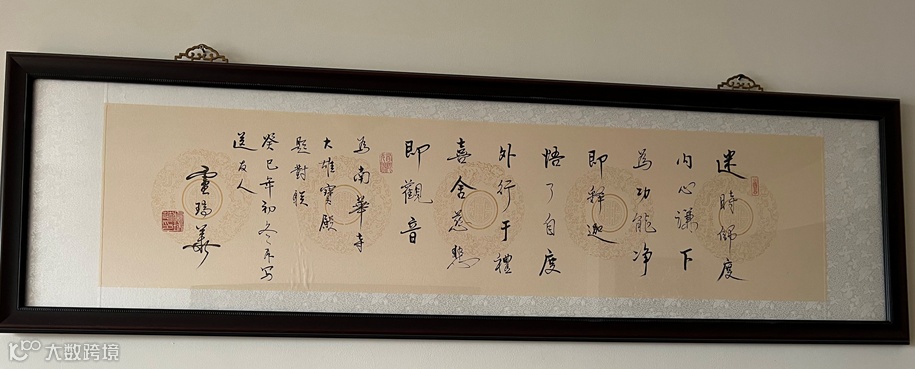 迷時師度
内心謙下
為功能净
即釋迦
悟了自度
外行于禮
喜舍慈悲
即觀音
為南華寺
大雄寶殿
題對联
癸巳年初冬再写
送友人
100 大数跨境